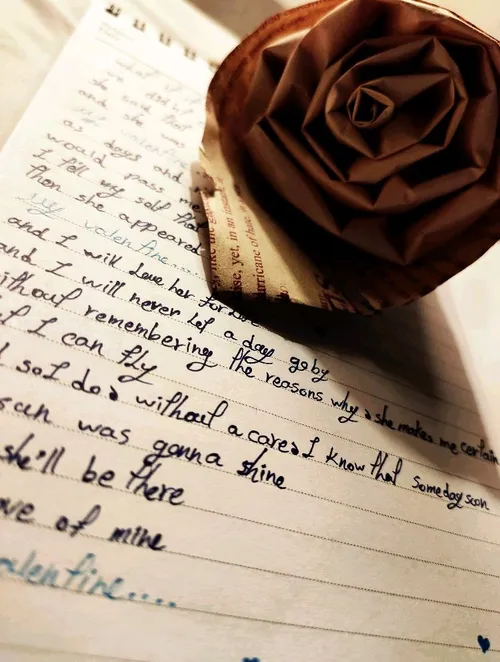 what if
we did
she said that
and she was
my valentine
as days and
would pass me
I tell my self that
Then she appeared
my valentine....
and I will love her for
and I will never let a day go by
without remembering the reasons why she makes me certain
I can fly
so I do, without a care, I know that someday soon
sun was gonna shine
she'll be there
of mine
valentine....
use, yet, in an
hurricane of